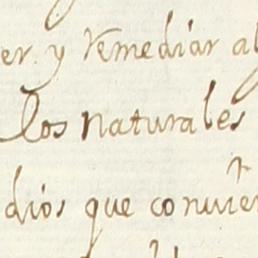 er y remediar al
los naturales
dios que conuiē